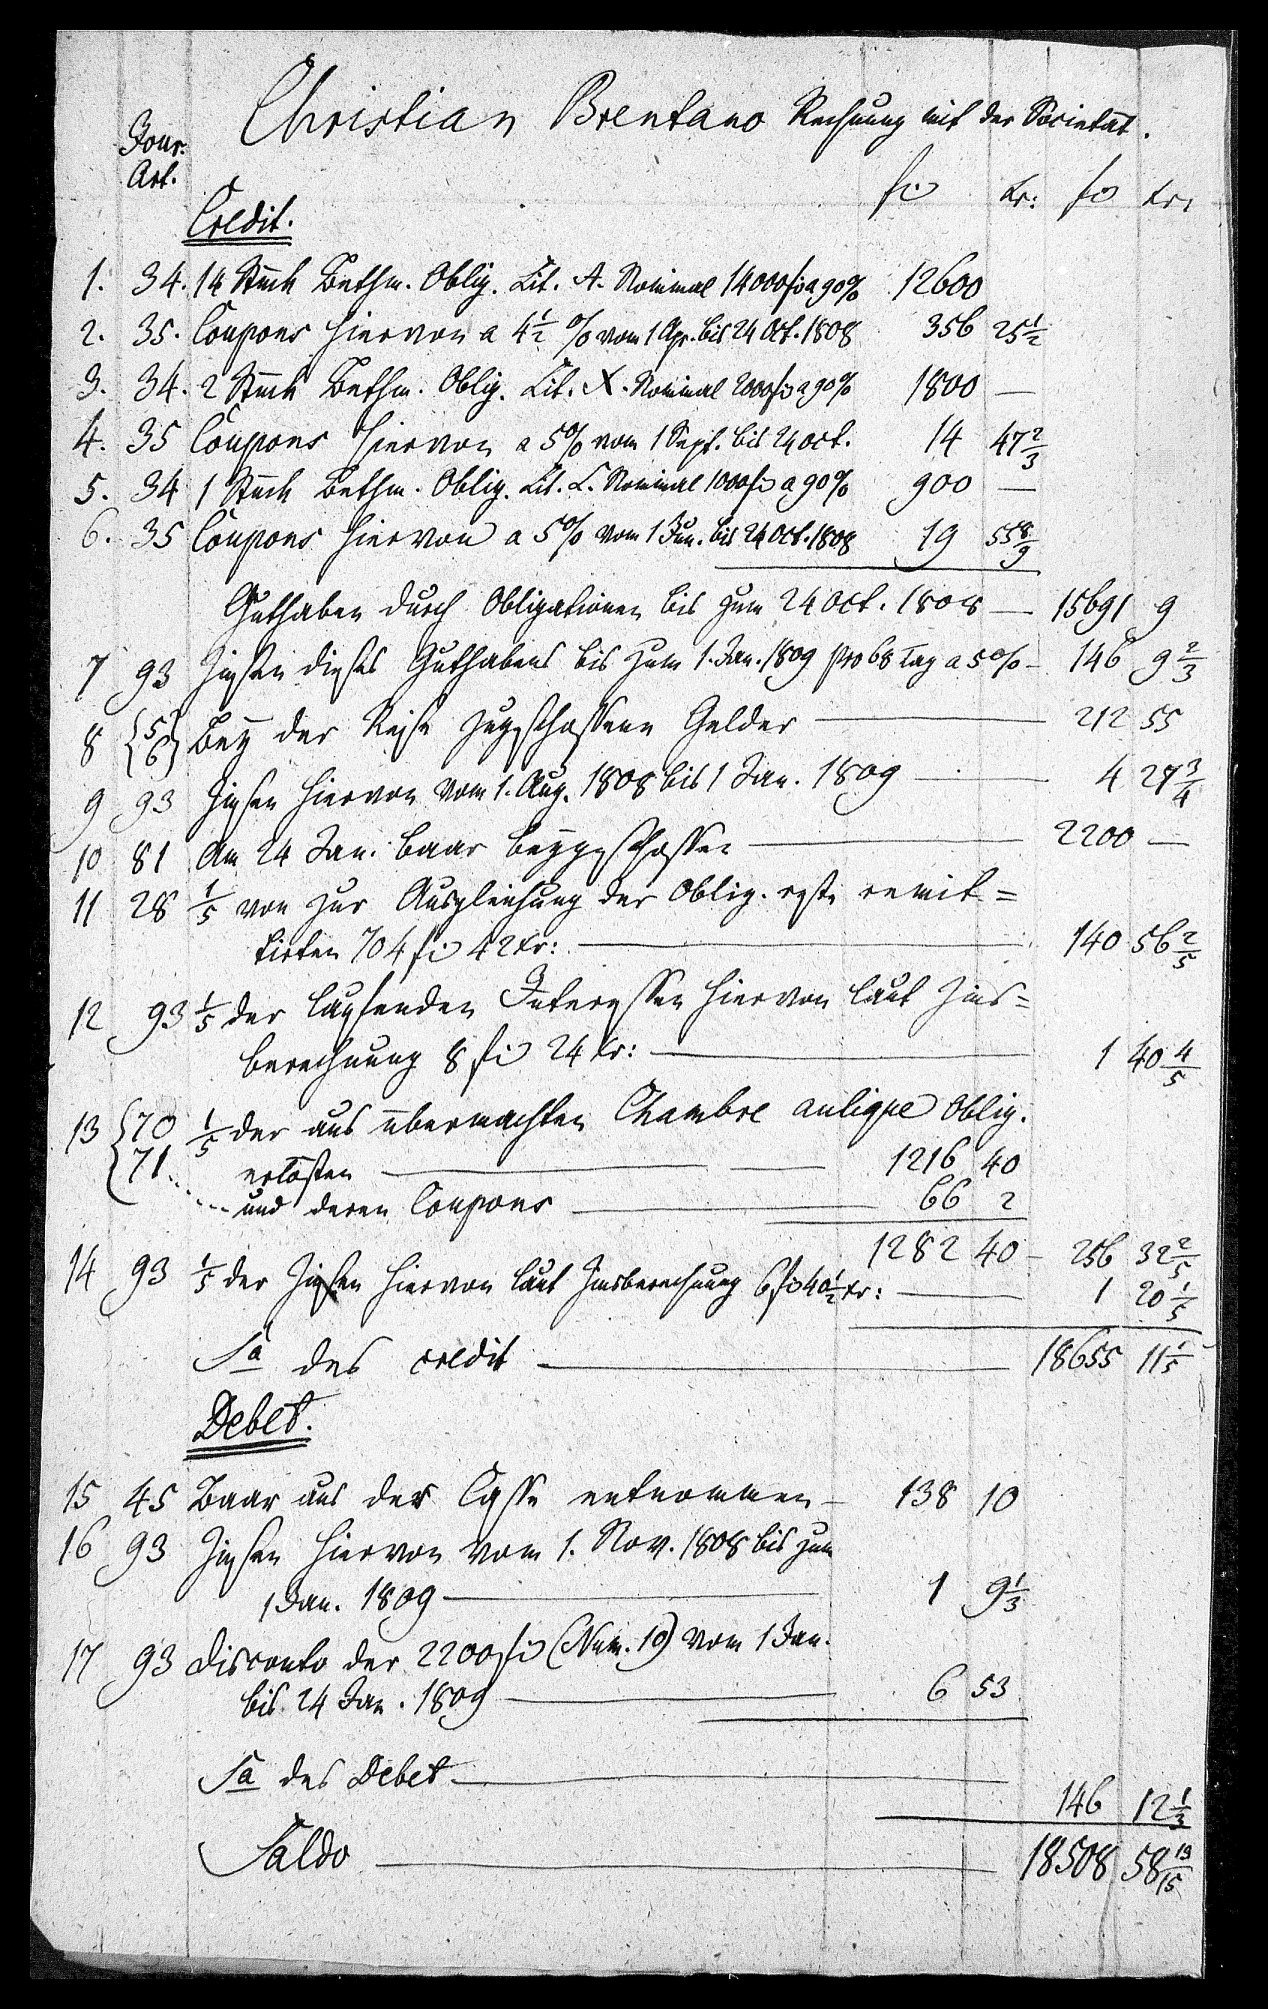 Christian Brentano Rechnung mit der Societät.
Jour.
Art.
fl kr: fl kr:
Credit.
1. 34. 14 Stück Bethm. Oblig. Lit. A. Nominal 14000 fl a 90% 12600
2. 35. Coupons hiervon a 4½ % vom 1 Apr. bis 24 Oct. 1808 356 25½
3. 34. 2 Stück Bethm. Oblig. Lit. X. Nominal 2000 fl a 90% 1800 —
4. 35 Coupons hiervon a 5% vom 1 Sept. bis 24 Oct. 14 47⅔
5. 34 1 Stück Bethm. Oblig. Lit. L. Nominal 1000 fl a 90% 900 —
6. 35 Coupons hiervon a 5% vom 1 Jun. bis 24 Oct. 1808 19 55 8/9
Guthaben durch Obligationen bis zum 24 Oct. 1808 — 15691 9
7 93 Zinsen dieses Guthabens bis zum 1. Jan. 1809 pro 68 Tag a 5% — 146 9⅔
8 {5 6} Bey der Reise zugeschossene Gelder — 212 55
9 93 Zinsen hiervon vom 1. Aug. 1808 bis 1 Jan. 1809 — 4 27¾
10 81 Am 24 Jan. baar beygeschossen — 2200 —
11 28 ⅕ von zur Ausgleichung der Oblig. remit=
tirten 704 fl 42 kr: — 140 56⅖
12 93 ⅕ der laufenden Interessen hiervon laut Zins=
berechnung 8 fl 24 kr: — 1 40⅘
13 {70 ⅕ der aus übermachten Chambre aulique Oblig.
71 erlösten — 1216 40
und deren Coupons — 66 2
1282 40 — 256 32⅖
14 93 ⅕ der Zinsen hiervon laut Zinsberechnung 6 fl 40½ kr: — 1 20⅕
Sa des credit — 18655 11⅕
Debet.
15 45 Baar aus der Casse entnommen — 138 10
16 93 Zinsen hiervon vom 1. Nov. 1808 bis zum
1 Jan. 1809 — 1 9⅓
17 93 Disconto der 2200 fl (Num. 10) vom 1 Jan.
bis 24 Jan. 1809 — 6 53
Sa des Debet — 146 12⅓
Saldo — 18508 58 13/15